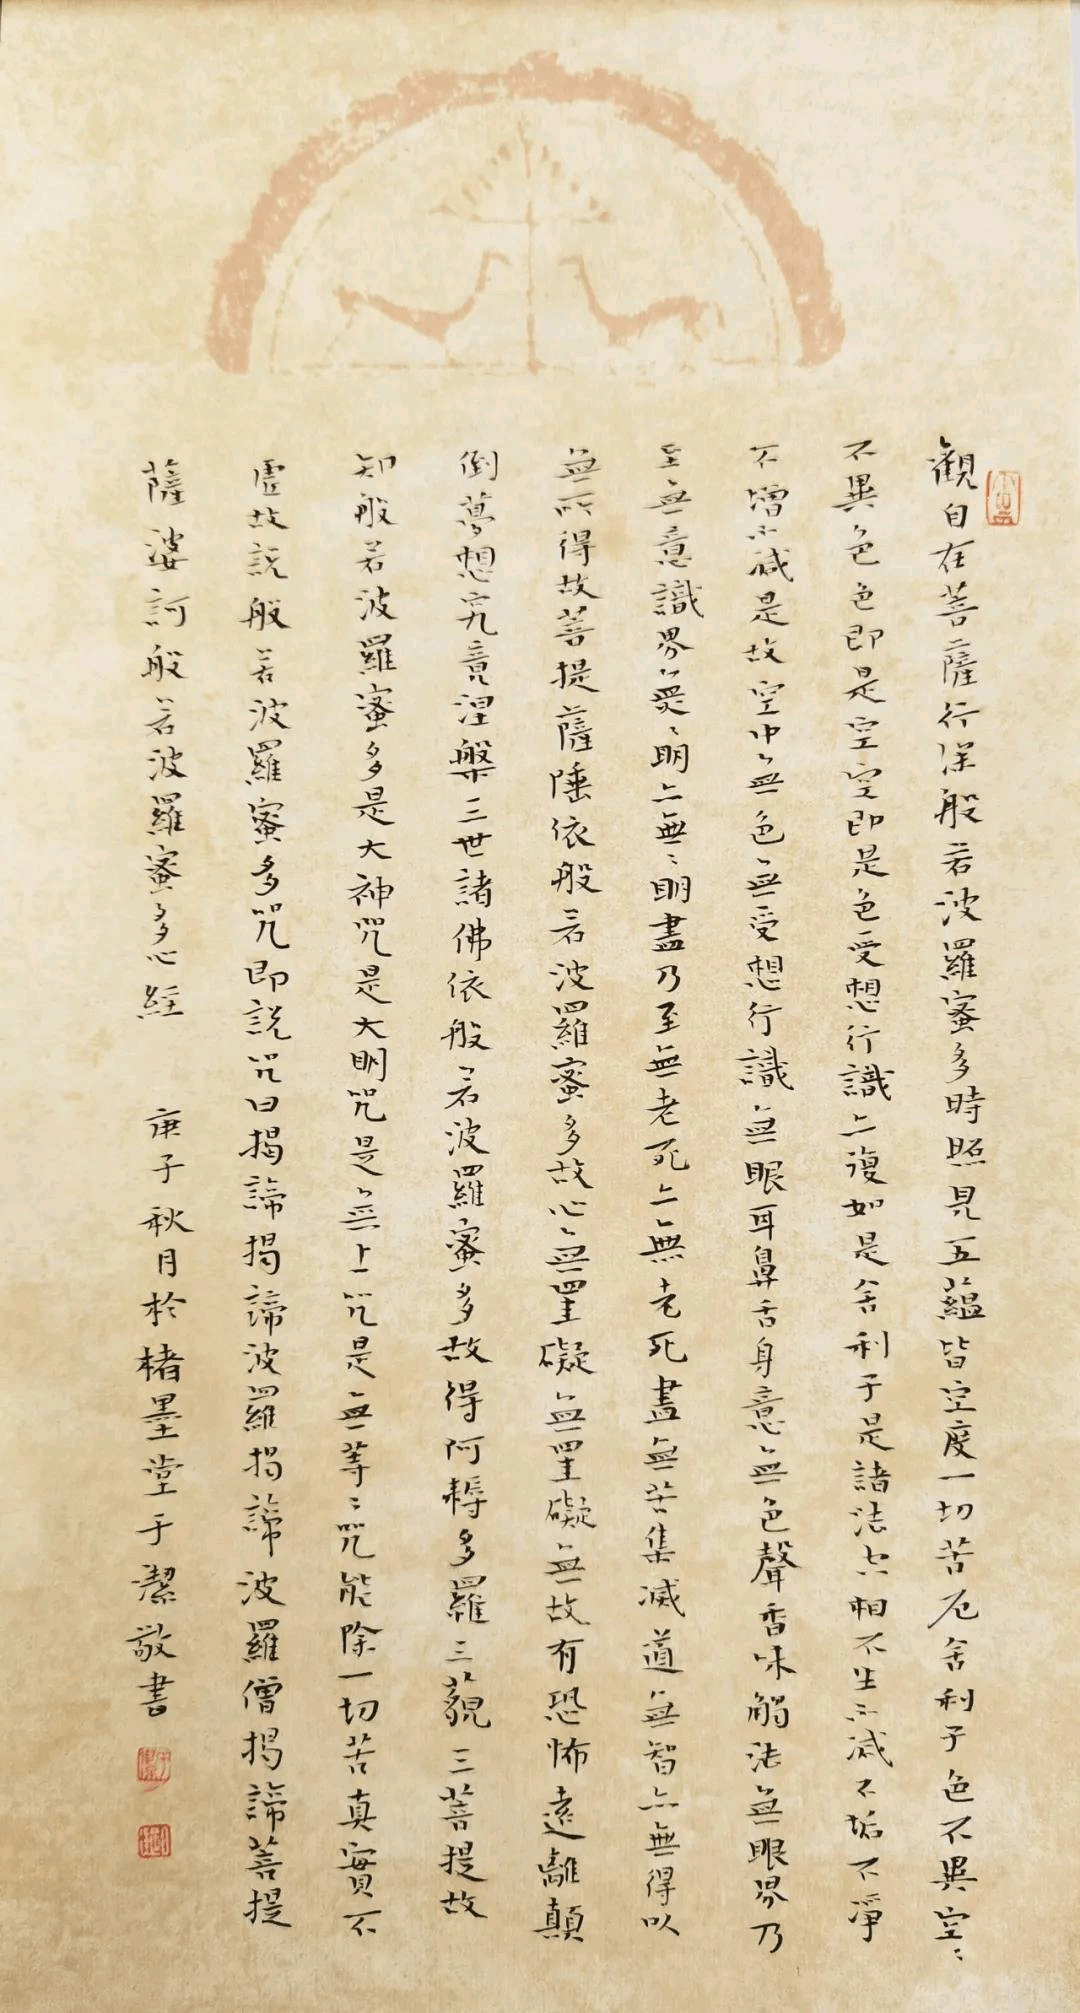 觀自在菩薩行深般若波羅蜜多時照見五蘊皆空度一切苦厄舍利子色不異空〻
不異色色即是空空即是色受想行識亦復如是舍利子是諸法空相不生不滅不垢不淨
不增不減是故空中無色無受想行識無眼耳鼻舌身意無色聲香味觸法無眼界乃
至無意識界無〻明亦無〻明盡乃至無老死亦無老死盡無苦集滅道無智亦無得以
無所得故菩提薩埵依般若波羅蜜多故心無罣礙無罣礙無故有恐怖遠離顛
倒夢想究竟涅槃三世諸佛依般若波羅蜜多故得阿耨多羅三藐三菩提故
知般若波羅蜜多是大神咒是大明咒是無上咒是無等〻咒能除一切苦真實不
虛故說般若波羅蜜多咒即說咒曰揭諦揭諦波羅揭諦波羅僧揭諦菩提
薩婆訶般若波羅蜜多心經 庚子秋月於楮墨堂于潔敬書